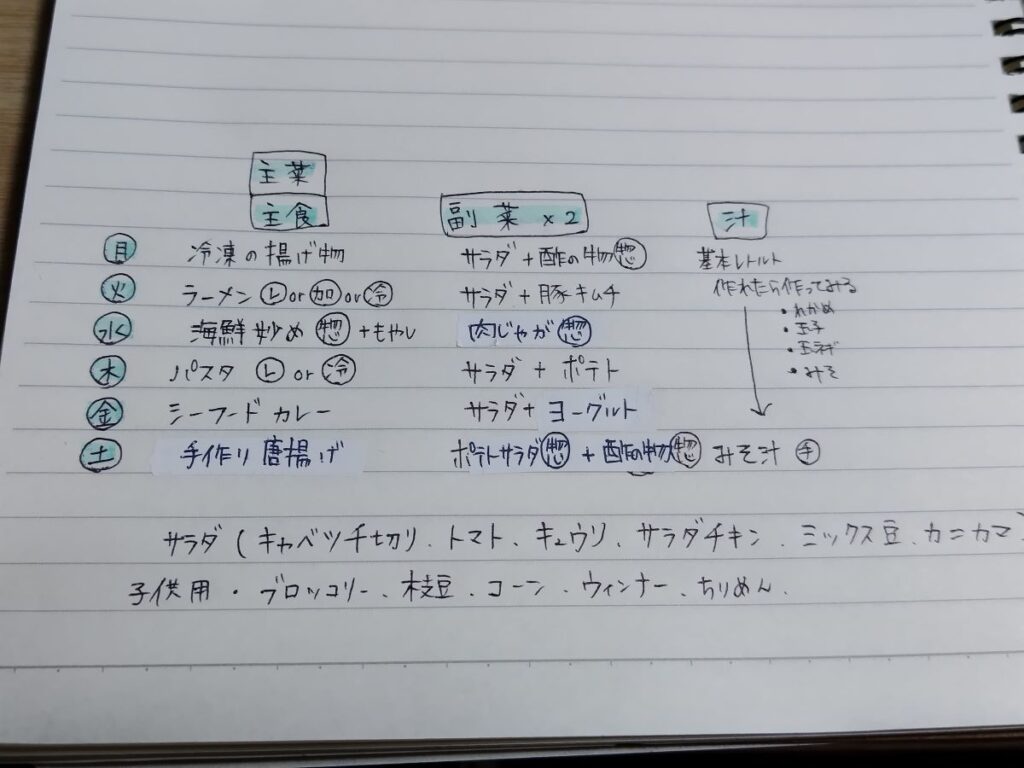 主菜
主食 副菜×2 汁
月 冷凍の揚げ物 サラダ+酢の物惣 基本レトルト
火 ラーメン レor加or冷 サラダ+豚キムチ 作れたら作ってみる
・わかめ
水 海鮮炒め 惣+もやし 肉じゃが惣 ・玉子
・玉ネギ
木 パスタ レor冷 サラダ+ポテト ・みそ
金 シーフードカレー サラダ+ヨーグルト
土 手作り唐揚げ ポテトサラダ惣+酢の物惣 みそ汁 手
サラダ(キャベツ千切り、トマト、キュウリ、サラダチキン、ミックス豆、カニカマ)
子供用・ブロッコリー、枝豆、コーン、ウィンナー、ちりめん、